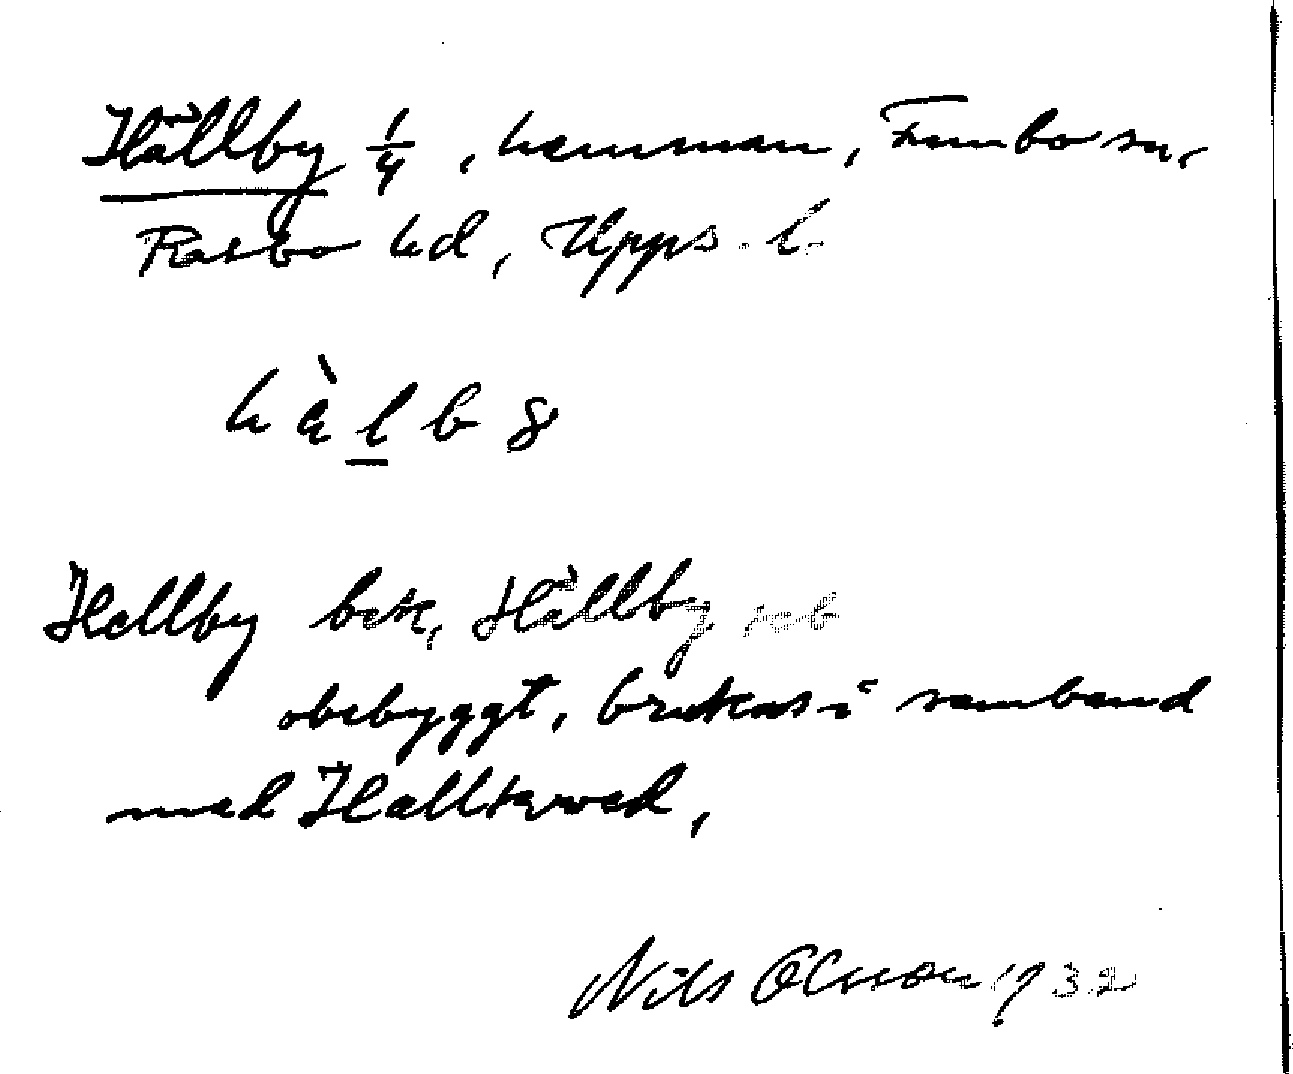 Hällby 1/4, hemman, Funbo sn,
Rasbo hd, Upps. l.
hὰlb8
Hellby bek, Hällby reb
obebyggt, brukas i samband
med Hallkved,
Nils Olsson 1932